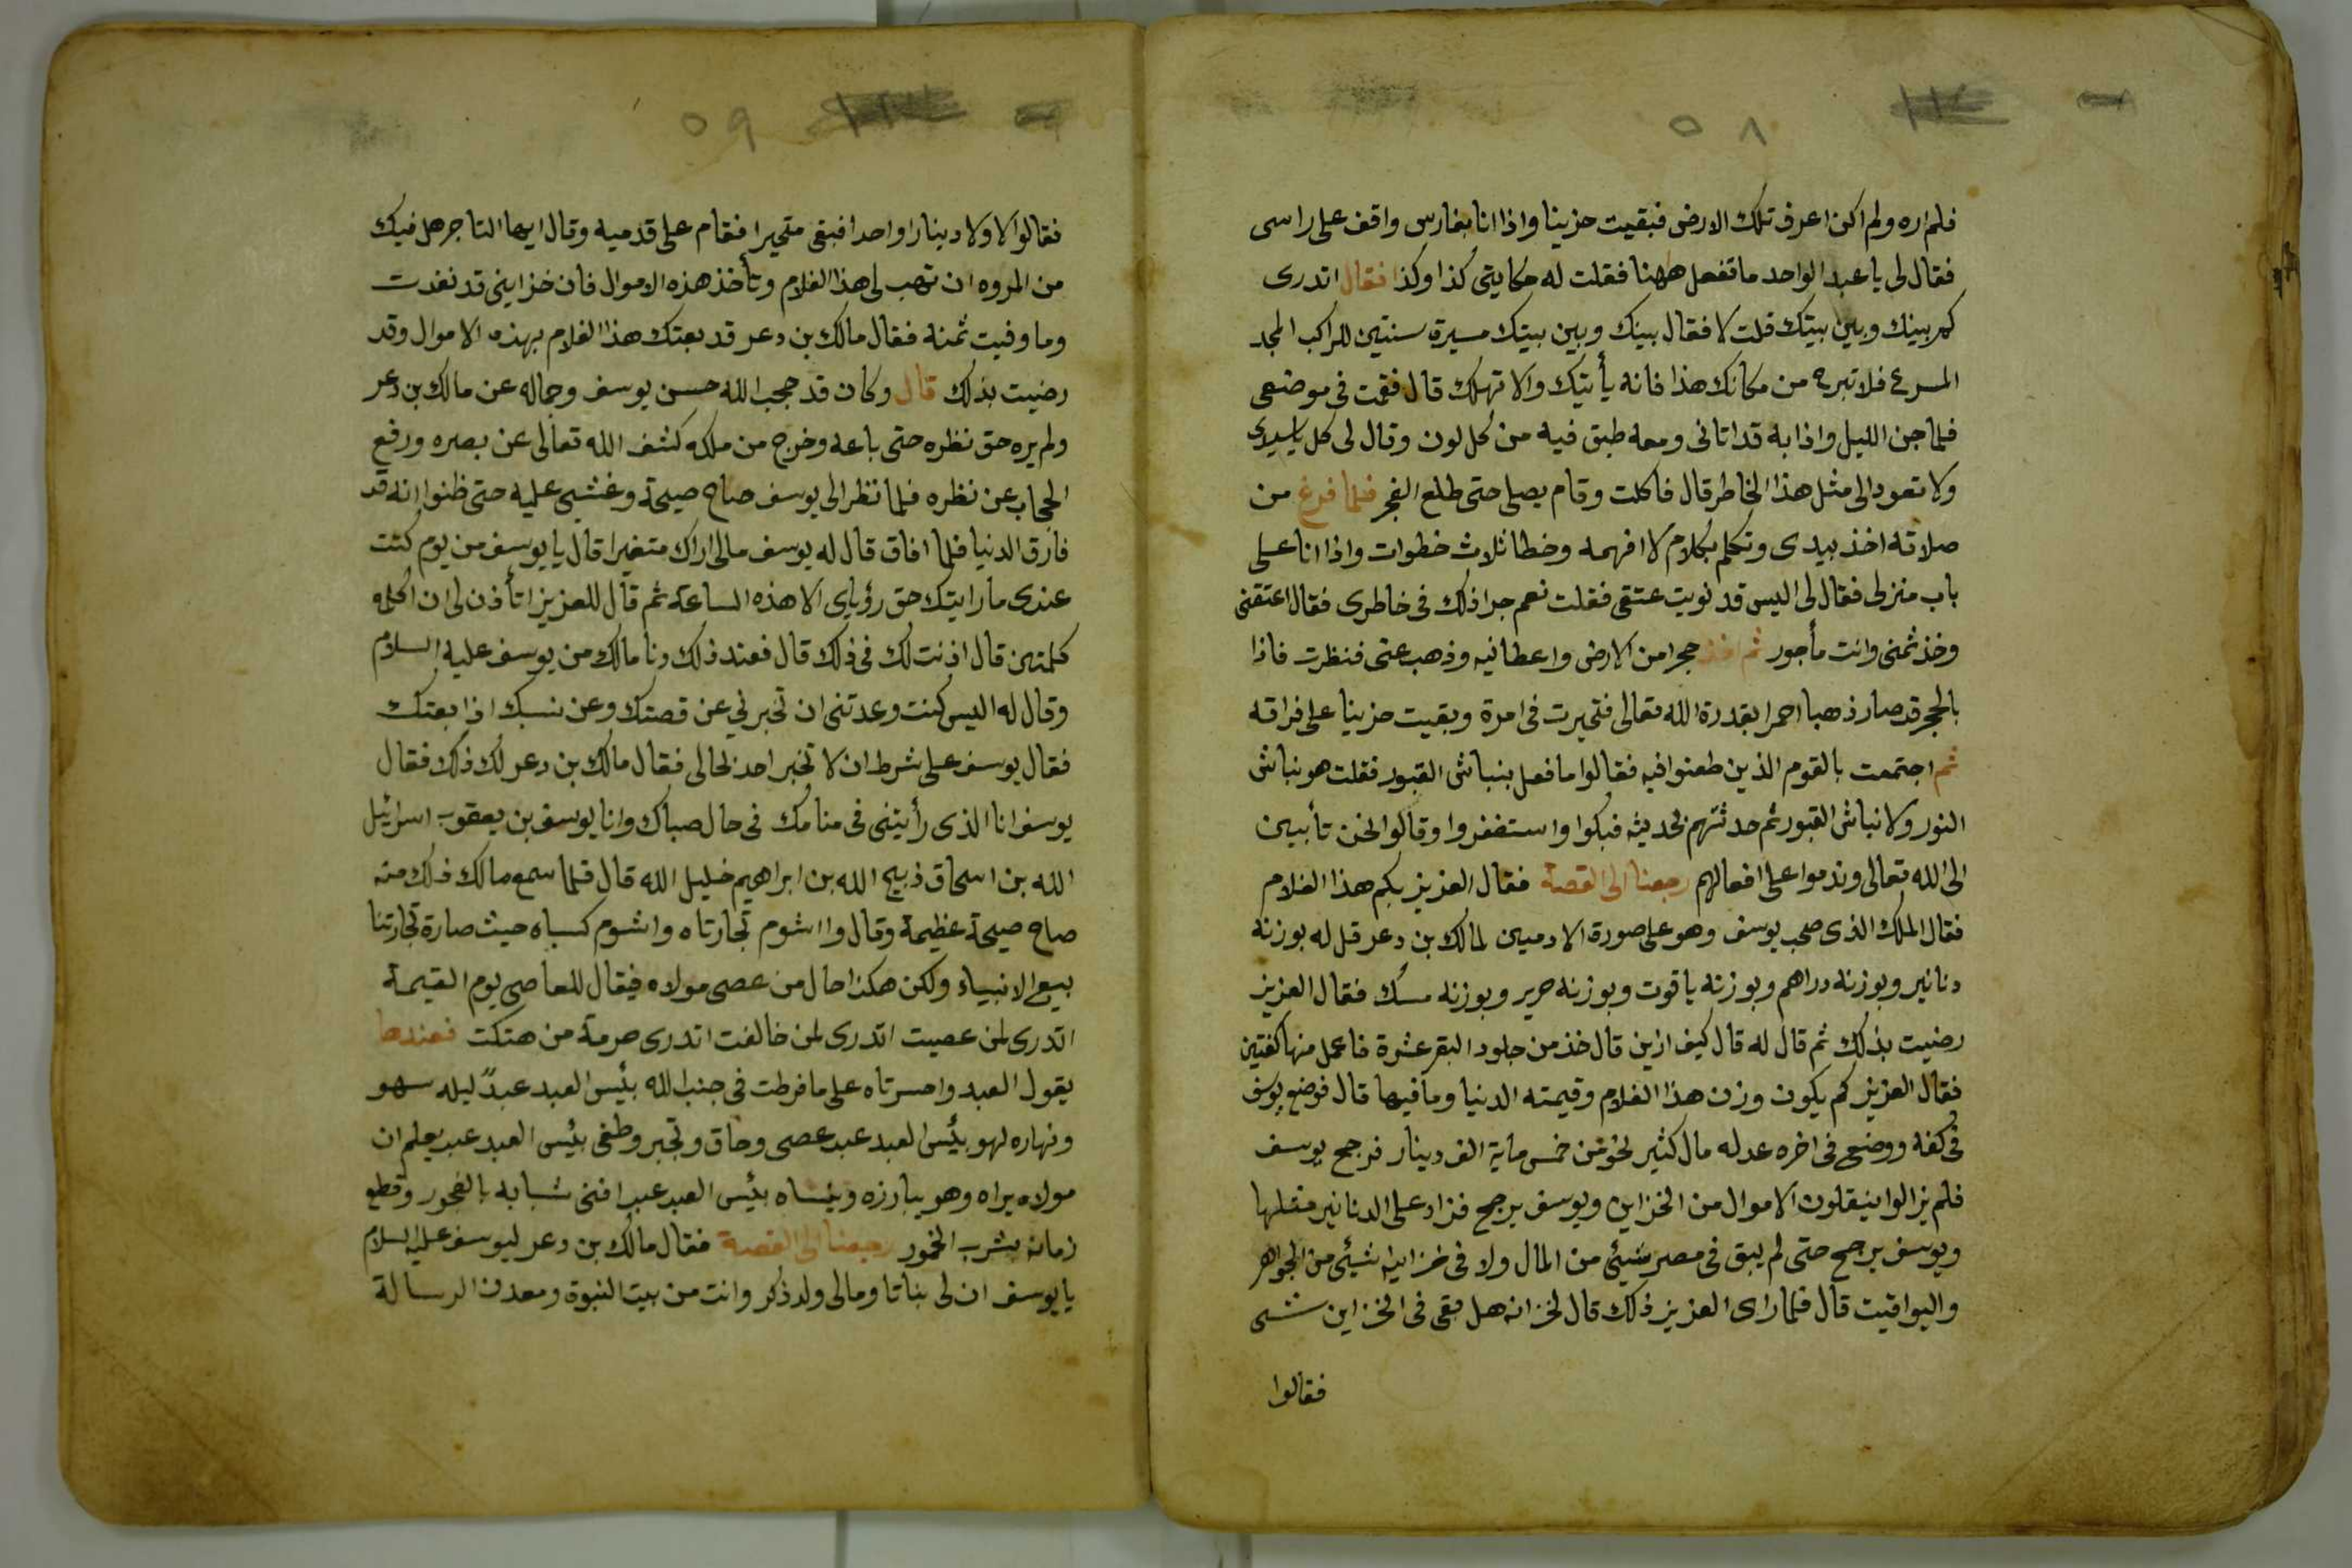 ٥٨
فلم اره ولم اكن اعرف تلك الارض فبقيت حزينا واذا انا بفارس واقف على راسى
فقال لى يا عبد الواحد ما تفعل ههنا فقلت له حكايتى كذا وكذا فقال اتدرى
كم بينك وبين بيتك قلت لا فقال بينك وبين بيتك مسيرة سنتين للراكب المجد
المسرع فلا تبرح من مكانك هذا فانه يأتيك والا تهلك قال فقمت فى موضعى
فلما جن الليل واذا به قد اتانى ومعه طبق فيه من كل لون وقال لى كل يا سيدى
ولا تعود الى مثل هذا الخاطر قال فاكلت وقام يصلى حتى طلع الفجر فلما فرغ من
صلاته اخذ بيدى وتكلم بكلام لا افهمه وخطا ثلاث خطوات واذا انا على
باب منزلى فقال لى اليس قد نويت عتقى فقلت نعم جرا ذلك فى خاطرى فقال اعتقنى
وخذ ثمنى وانت مأجور ثم اخذ حجرا من الارض واعطانيه وذهب عنى فنظرت فاذا
بالحجر قد صار ذهبا احمرا بقدرة الله تعالى فتحيرت فى امرة وبقيت حزينا على فراقه
ثم اجتمعت بالقوم الذين طعنوا فيه فقالوا ما فعل بنباش القبور فقلت هو نباش
النور ولا نباش القبور ثم حدثتهم بحديثه فبكوا واستغفروا وقالوا نحن تأبين
الى الله تعالى وندموا على افعالهم رجعنا الى القصة فقال العزيز بكم هذا الغلام
فقال الملك الذى صحب يوسف وهو على صورة الادميين لمالك بن دعر قل له بوزنه
دنانير وبوزنه دراهم وبوزنه ياقوت وبوزنه حرير وبوزنه مسك فقال العزيز
رضيت بذلك ثم قال له قال كيف ازين قال خذ من جلود البقر عشرة فاعمل منها كفتين
فقال العزيز كم يكون وزن هذا الغلام وقيمته الدنيا وما فيها قال فوضع يوسف
فى كفه ووضع فى اخره عدله مال كثير نحو من خمس ماية الف دينار فرجح يوسف
فلم يزالوا ينقلون الاموال من الخزاين ويوسف يرجح فزاد على الدنانير مثلها
ويوسف يرجح حتى لم يبق فى مصر شيئ من المال ولا فى خزاينه شيئ من الجواهر
واليواقيت قال فلما راى العزيز ذلك قال لخزانه هل بقى فى الخزاين شى
فقالوا
٥٩
فقالوا لا ولا دينارا واحدا فبقى متحيرا فقام على قدميه وقال ايها التاجر هل فيك
من المروه ان تهب لى هذا الغلام وتأخذ هذه الاموال فان خزاينى قد نفدت
وما وفيت ثمنه فقال مالك بن دعر قد بعتك هذا الغلام بهذه الاموال وقد
رضيت بذلك قال وكان قد حجب الله حسن يوسف وجماله عن مالك بن دعر
ولم يره حق نظره حتى باعه وخرج من ملكه كشف الله تعالى عن بصره ورفع
الحجاب عن نظره فلما نظر الى يوسف صاح صيحة وغشى عليه حتى ظنوا انه قد
فارق الدنيا فلما افاق قال له يوسف مالى اراك متغيرا قال يا يوسف من يوم كنت
عندى ما رايتك حق رؤياى الا هذه الساعة ثم قال للعزيز اتأذن لى ان اكلمه
كلمتين قال اذنت لك فى ذلك قال فعند ذلك دنا مالك من يوسف عليه السلام
وقال له اليس كنت وعدتنى ان تخبرني عن قصتك وعن نسبك اذا بعتك
فقال يوسف على شرط ان لا تخبر احد بحالى فقال مالك بن دعر لك ذلك فقال
يوسف انا الذى رأيتنى فى منامك فى حال صباك وانا يوسف بن يعقوب اسرائيل
الله بن اسحاق ذبيح الله بن ابراهيم خليل الله قال فلما سمع مالك ذلك منه
صاح صيحة عظيمة وقال وا اشوم تجارتاه واشوم كسباه حيث صارة تجارتنا
بيع الانبياء ولكن هكذا حال من عصى مولاه فيقال للعاصى يوم القيمة
اتدرى لمن عصيت اتدرى لمن خالفت اتدرى حرمة من هتكت فعندها
يقول العبد واحسرتاه على ما فرطت فى جنب الله بئيس العبد عبدً ليله سهو
ونهاره لهو بئيس العبد عبد عصى وحاق وتجبر وطغى بئيس العبد عبد يعلم ان
مولاه يراه وهو يبارزه وينساه بئيس العبد عبد افنى شبابه بالفجور وقطع
زمانه بشرب الخمور رجعنا الى القصة فقال مالك بن دعر ليوسف عليه السلام
يا يوسف ان لى بناتا ومالى ولد ذكر وانت من بيت النبوة ومعدن الرسالة